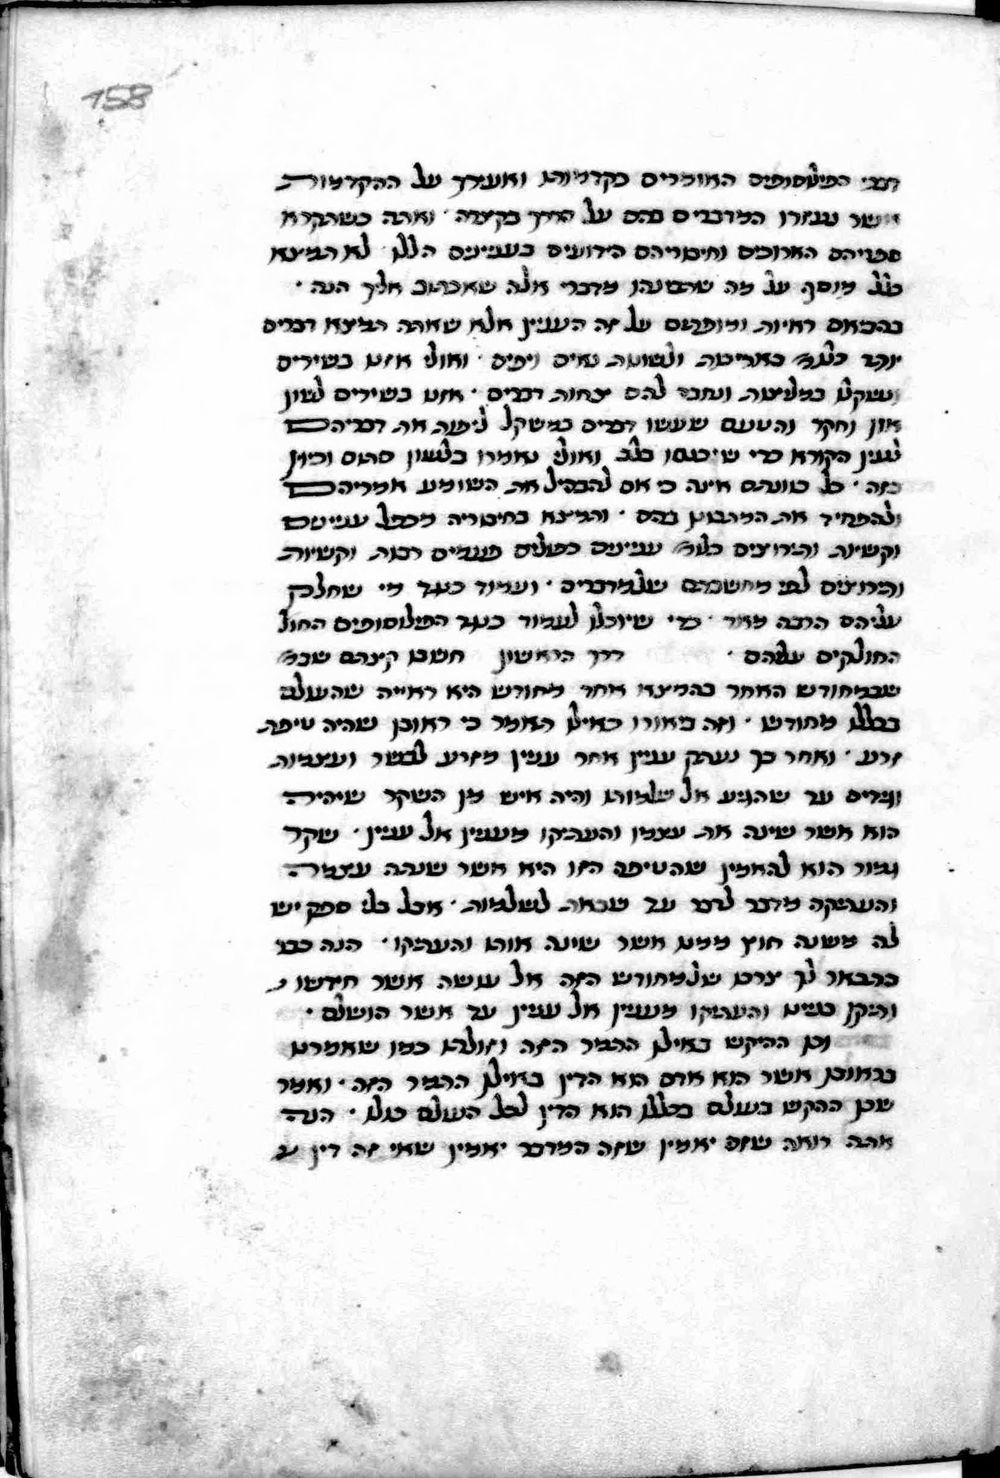 158
דברי הפילוסופים האומרים בקדמות ואעירך על ההקדמות
אשר נעזרו המדברים בהם על דרך בקצרה ואתה כשתקרא
ספריהם הארוכים וחיבוריהם הידועים בעניינים הללו לא תמצא
כלל מוסף על מה שתבינהו מדברי אלה שאכתוב אליך הנה ·
בהבאם ראיות ומופתים על זה העניין אלא שאתה תמצא דברים
יותר באריכות ולשונות נאים ויפים · ואולי אזנו בשירים
ושקלו במליצות ונחבר להם צחות דברים · אזנו בשירים לשון
אזן וחקר והטעם שעשו דברים במשקל ליפות את דבריהם
לעין הקורא כדי שיכנסו בלב ואולי נאמרו בלשון סתום וכיון
בזה · כל כוונתם אינה כי אם להבהיל את השומע אמריהם
ולהפחיד את המתבונן בהם · ותמצא בחיבוריה מכפל ענייניהם
וקשיות ותירוצים עניינים כפולים פעמים רבות וקשיות
ותירוצים לפי מחשבתם שלמדברים · ועמוד כנגד מי שחלק
עליהם הרבה מאד · כדי שיוכלו לעמוד כנגד הפילוסופים החול
החולקים עליהם · דרך הראשון חשבו קצתם
שבמחודש האחד בהמצאו אחד מחודש היא ראייה שהעולם
בכללו מחודש · וזה באורו כאילו תאמר כי ראובן שהיה טיפה
זרע · ואחר כך נעתק עניין אחר עניין מזרע לבשר ועצמות
וגידים עד שהגיע אל שלמותו והיה איש מן השקר שיהיה
הוא אשר שינה את עצמו והעתיקו מעניין אל עניין · שקר
גמור הוא להאמין שהטיפה הזו היא אשר שנתה עצמה
והעתיקה מדבר לדבר עד שבאת לשלמות · אבל בלי ספק יש
לה משנה חוץ ממנו אשר שינה אותו והעתיקו · הנה כבר
נתבאר לך צרכו שלמחודש הזה אל עושה אשר חידשו
ותקן בנינו והעתיקו מעניין אל עניין עד אשר הושלם ·
וכן ההיקש באילן התמר הזה וזולתו כמו שאמרנו
בראובן אשר הוא אדם הוא הדין באילן התמר הזה · ואמר
שכן ההקש בעולם בכללו הוא הדין לכל העולם כולו · הנה
אתה רואה שזה יאמין שזה המדבר יאמין שאי זה דין